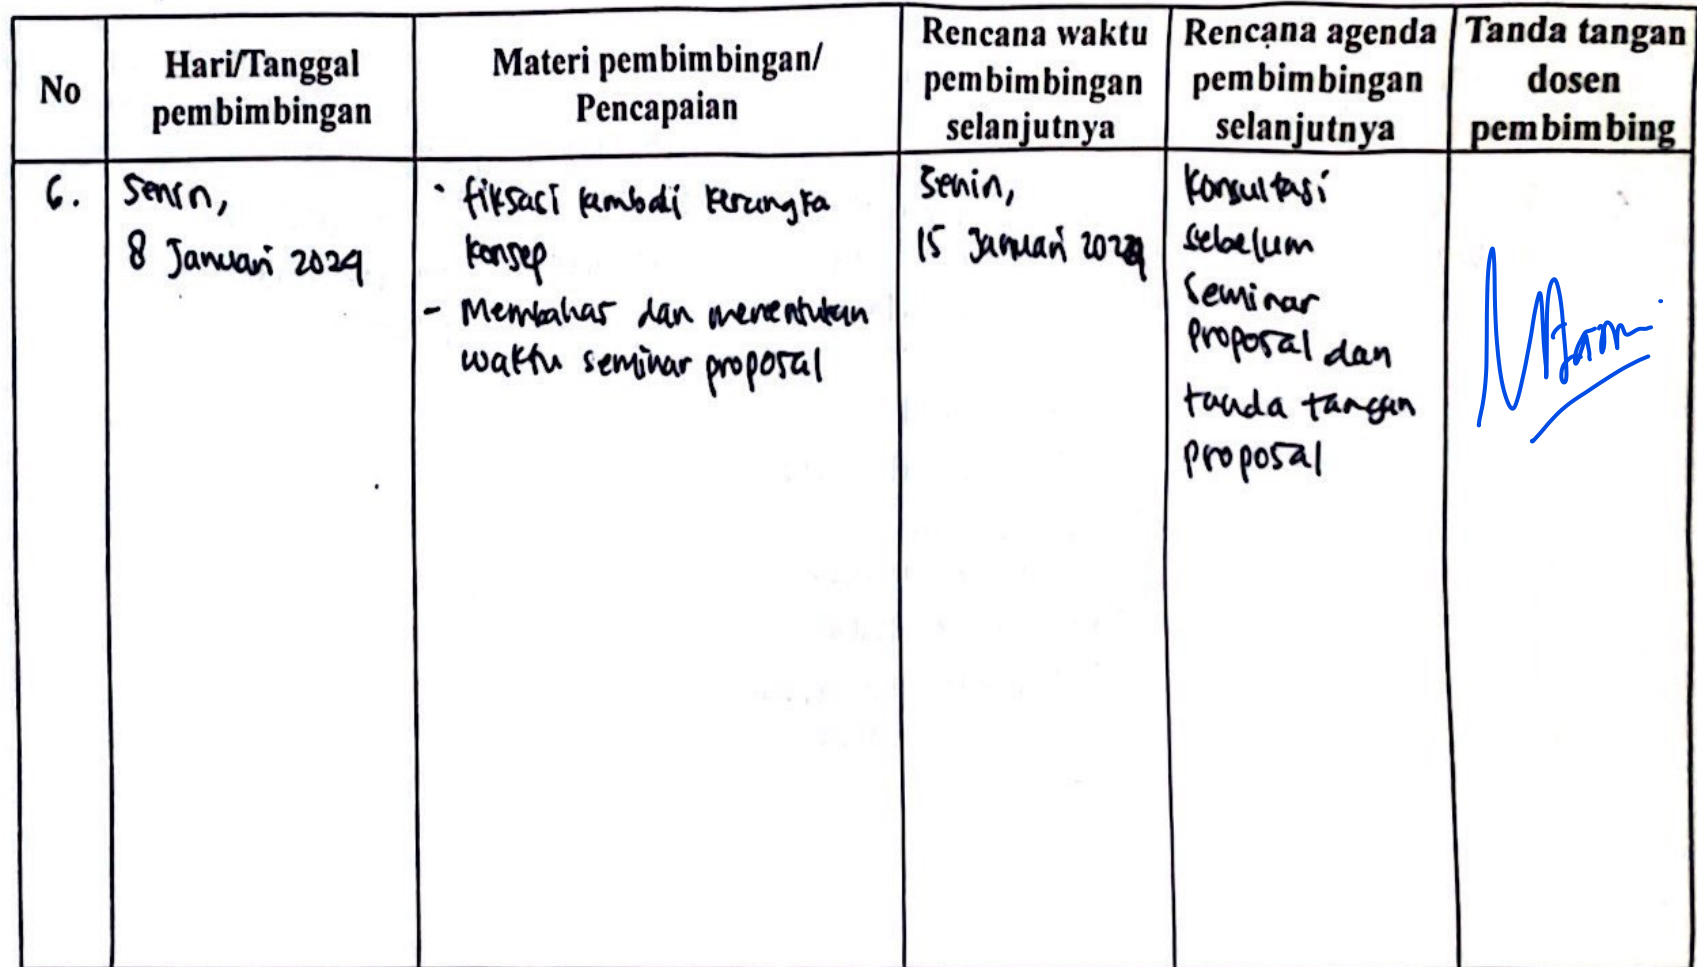 No
Hari/Tanggal
pembimbingan
Materi pembimbingan/
Pencapaian
Rencana waktu
pembimbingan
selanjutnya
Rencana agenda
pembimbingan
selanjutnya
Tanda tangan
dosen
pembimbing
6.
Senin,
8 Januari 2024
- fiksasi kembali kerangka
konsep
- Membahas dan menentukan
waktu seminar proposal
Senin,
15 Januari 2024
Konsultasi
sebelum
Seminar
proposal dan
tanda tangan
proposal